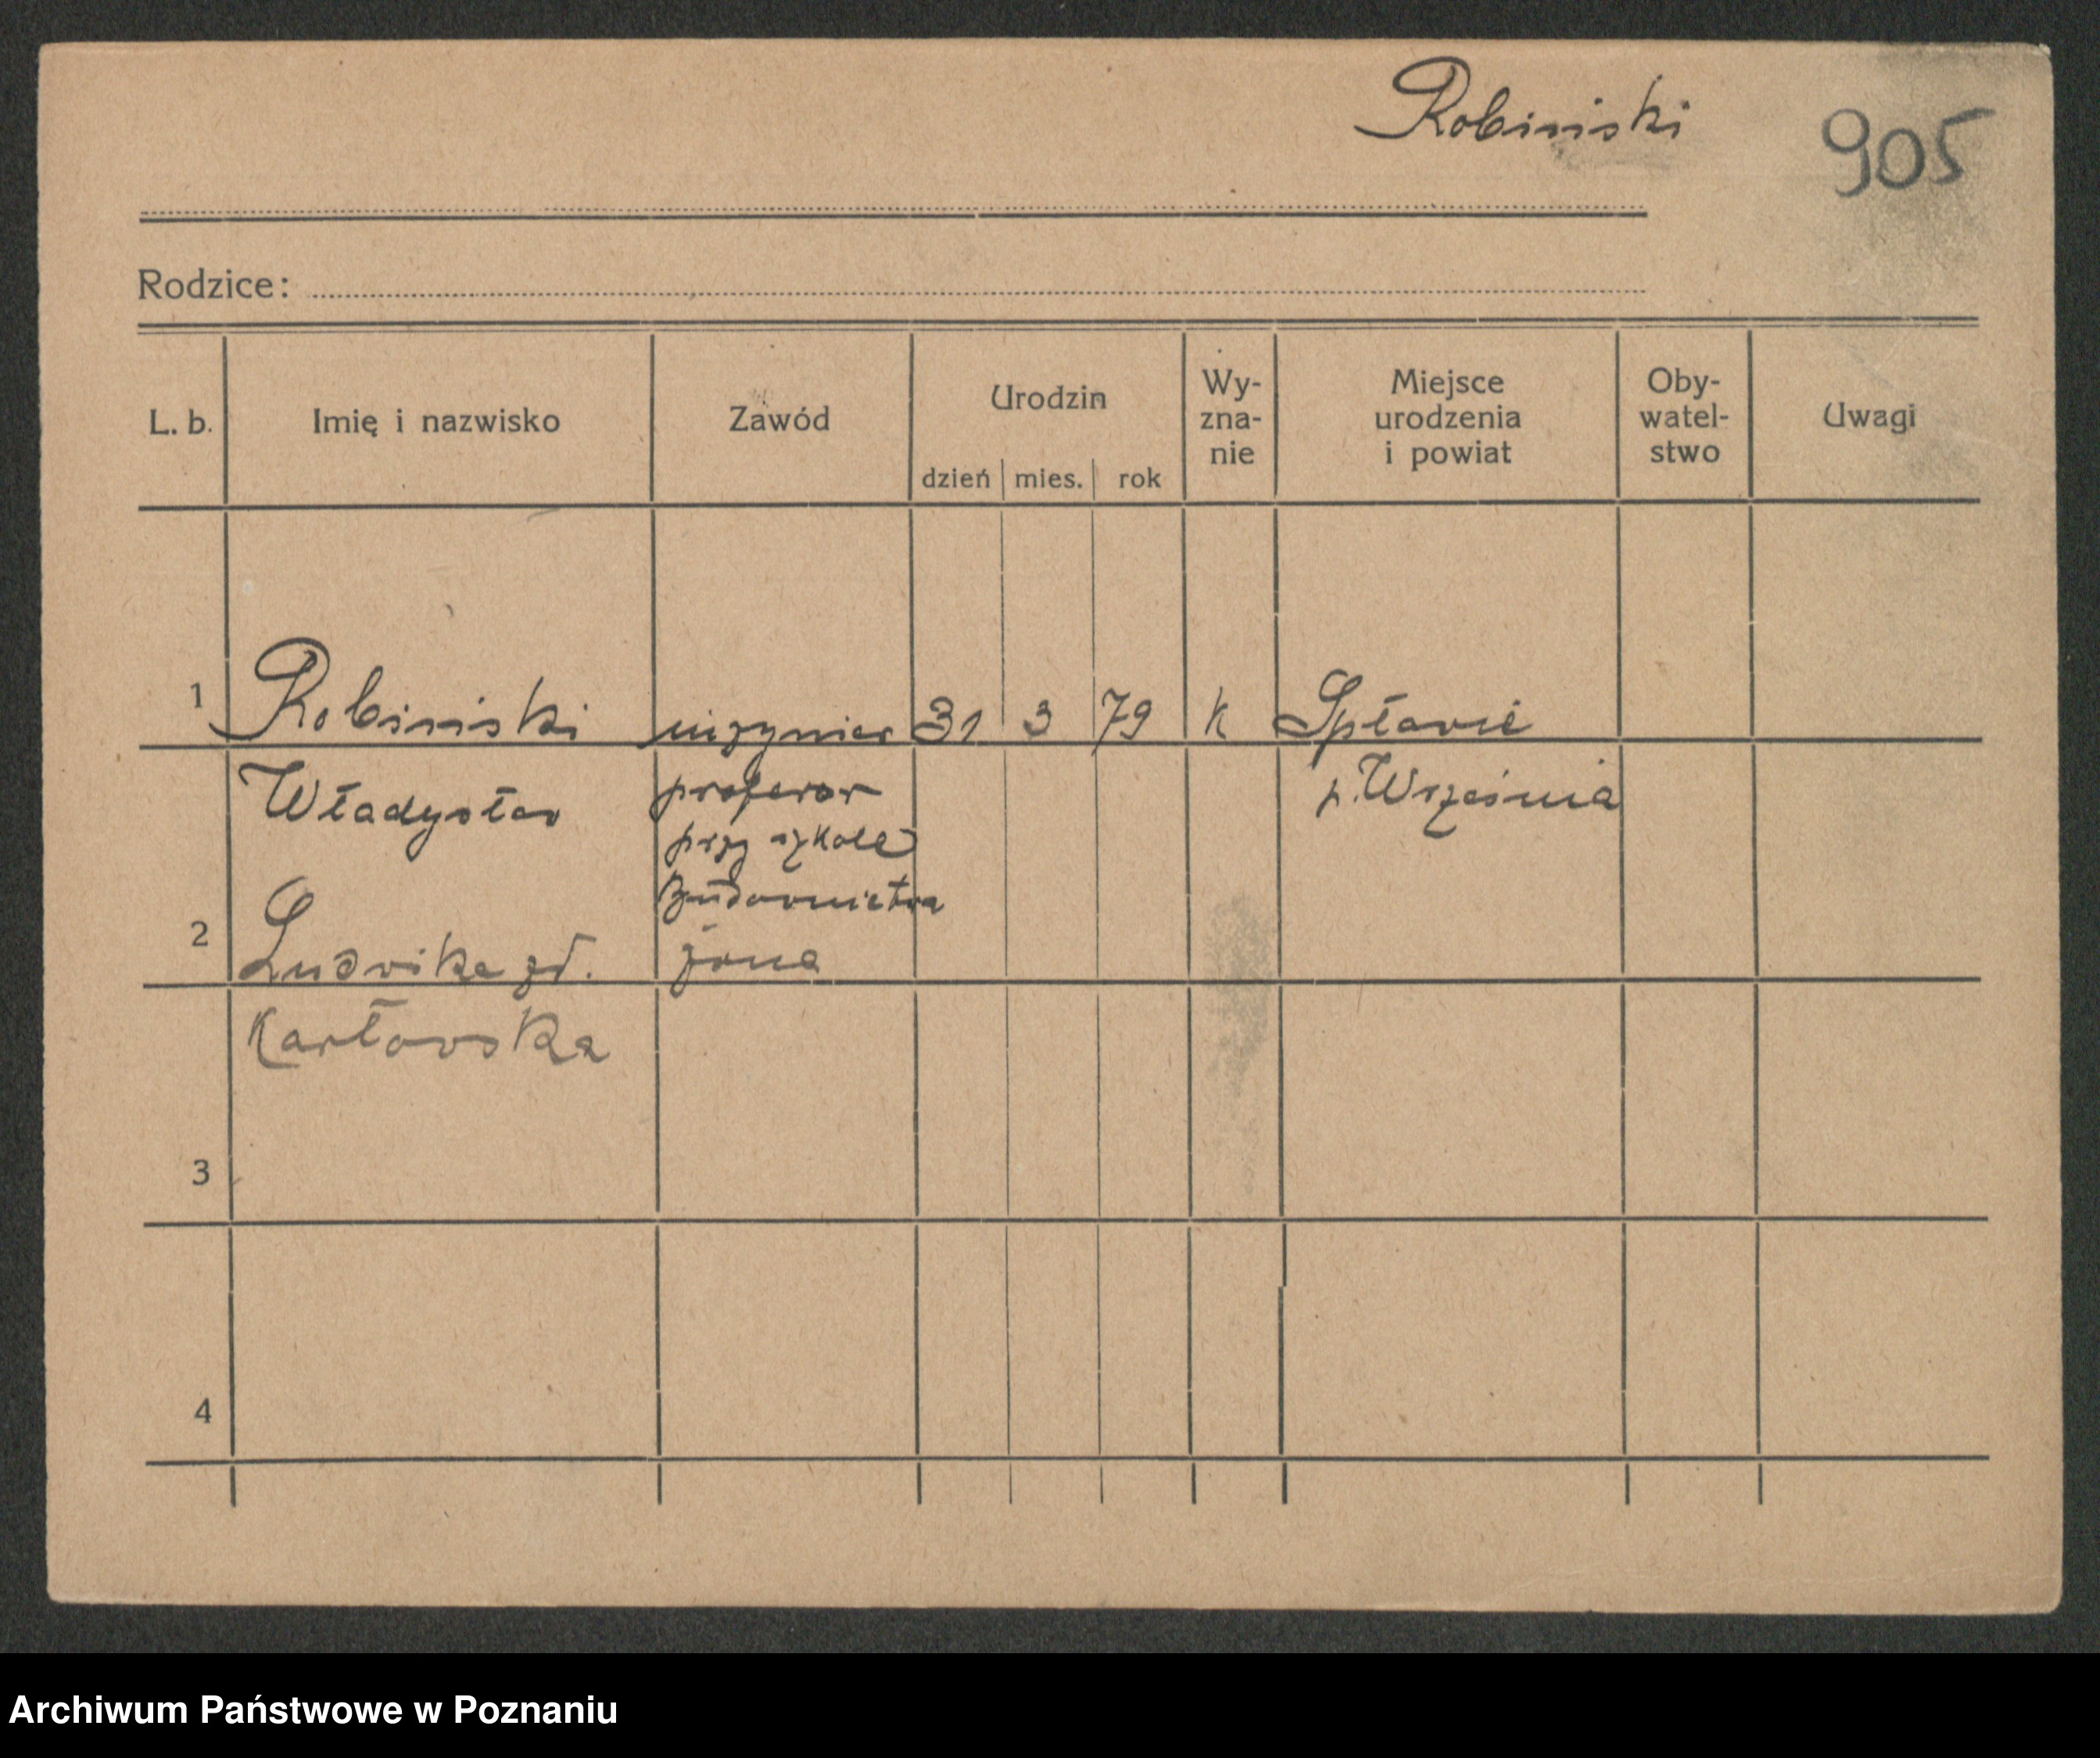 Robiński
905
Rodzice:
L. b.
Imię i nazwisko
Zawód
Urodzin
dzień
mies.
rok
Wy-
zna-
nie
Miejsce
urodzenia
i powiat
Oby-
watel-
stwo
Uwagi
1
Robiński
inżynier
31
3
79
k
Spławie
Władysław
profesor
p. Września
przy szkole
Budownictwa
2
Ludwika zd.
żona
Karłowska
3
4
Archiwum Państwowe w Poznaniu